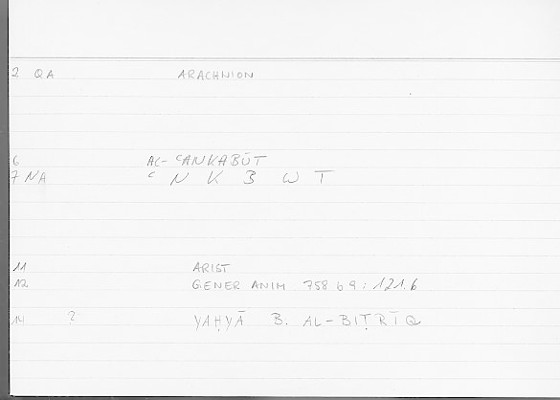 2 QA ARACHNION
6 AL-ʿANKABŪT
7 NA ʿ N K B W T
11 ARIST
12 GENER ANIM 758 b 9 : 121.6
14 ? YAḤYĀ B. AL-BIṬRĪQ